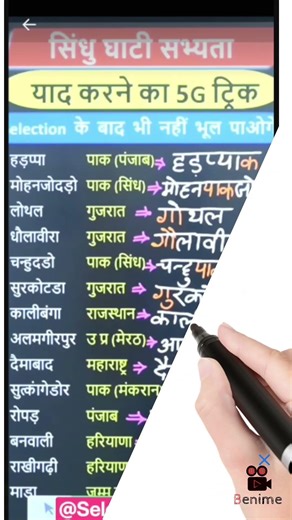 सिंधु घाटी सभ्यता
याद करने का 5G ट्रिक
election के बाद भी नहीं भूल पाओगे
हड़प्पा पाक (पंजाब) हड़प्पाक
मोहनजोदड़ो पाक (सिंध) मोहनपाकजो
लोथल गुजरात गोथल
धौलावीरा गुजरात गौलावी
चन्हुदडो पाक (सिंध) चन्हुपा
सुरकोटडा गुजरात गुरको
कालीबंगा राजस्थान काल
अलमगीरपुर उ प्र (मेरठ)
दैमाबाद महाराष्ट्र
सुत्कांगेडोर पाक (मंकरान
रोपड़ पंजाब
बनवाली हरियाणा
राखीगढ़ी हरि
माडा जम्म
@Sele
Benime